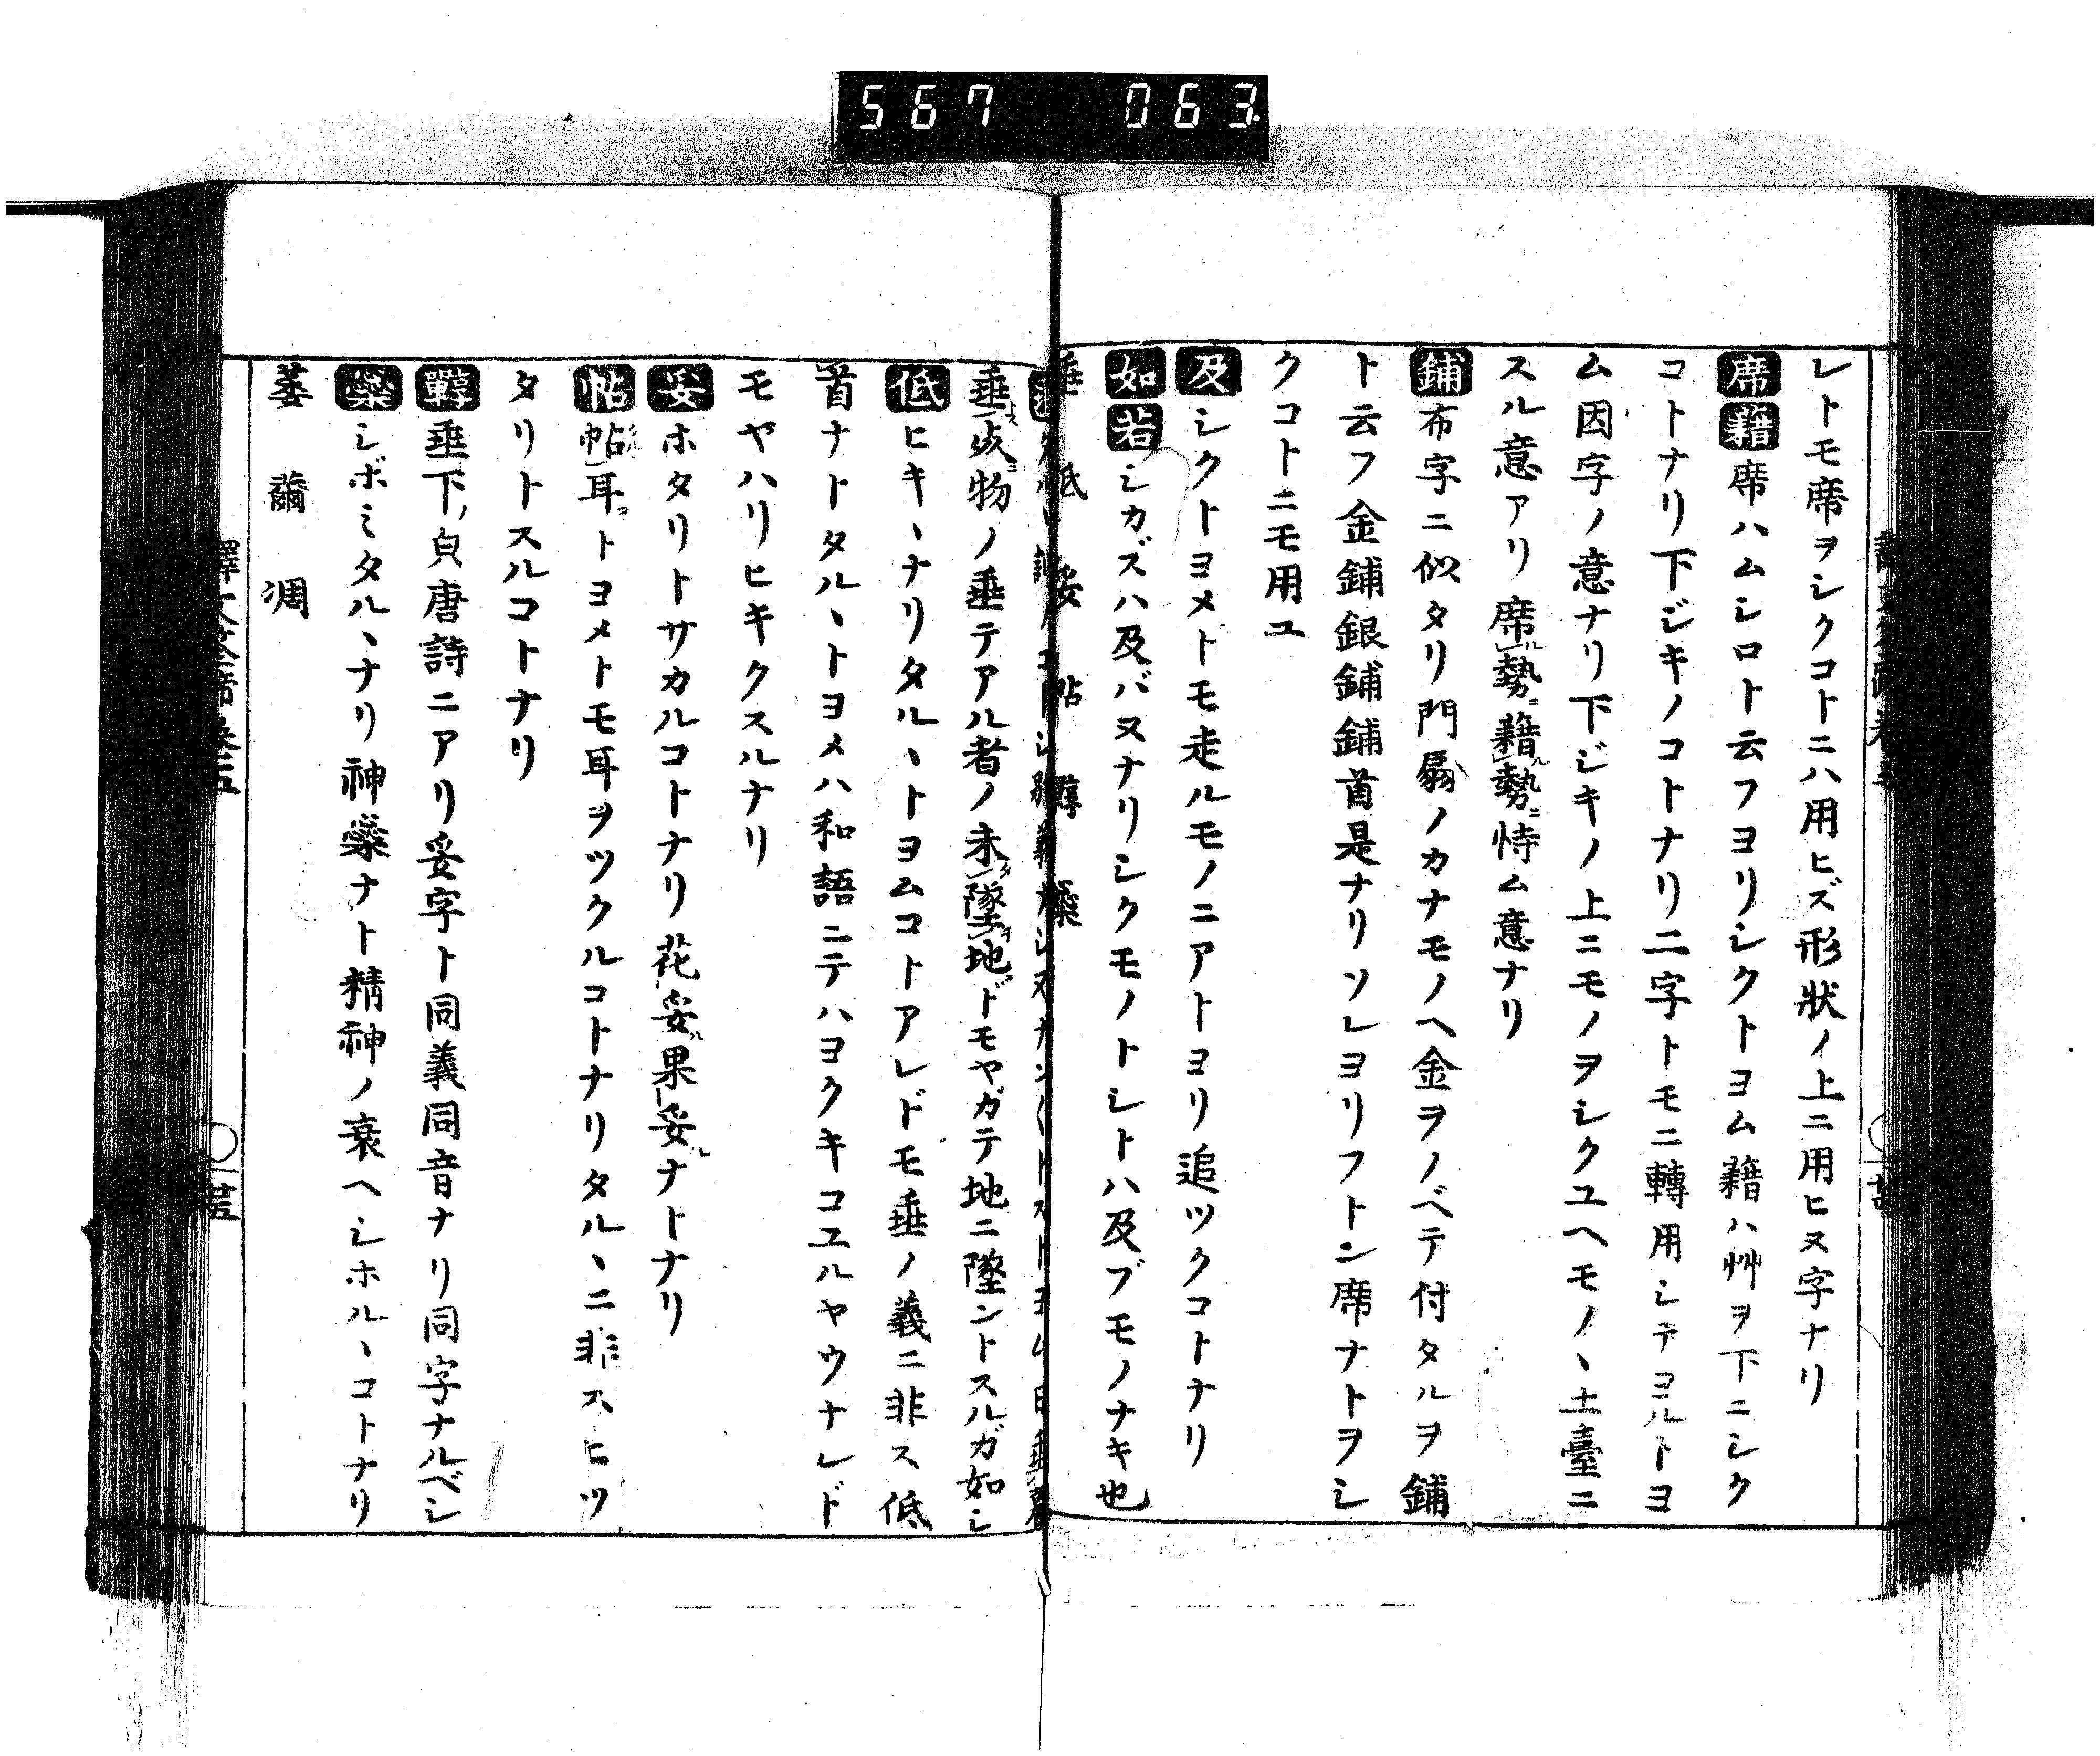 567 063
レトモ席ヲシクコトニハ用ヒズ形狀ノ上ニ用ヒヌ字ナリ
席藉席ハムシロト云フヨリシクトヨム藉ハ艸ヲ下ニシク
コトナリ下ジキノコトナリ二字トモニ轉用シテヨルトヨ
ム因字ノ意ナリ下ジキノ上ニモノヲシクユヘモノヽ土臺ニ
スル意アリ席勢藉勢恃ム意ナリ
鋪布字ニ似タリ門扇ノカナモノヘ金ヲノベテ付タルヲ鋪
ト云フ金鋪銀鋪鋪首是ナリソレヨリフトン席ナトヲシ
クコトニモ用ユ
及シクトヨメトモ走ルモノニアトヨリ追ツクコトナリ
如若シカズハ及バヌナリシクモノトシトハ及ブモノナキ也
垂低妥帖嚲蘂
垂物ノ垂テアル者ノ未墜地ドモヤガテ地ニ墜ントスルガ如シ
低ヒキヽナリタルヽトヨムコトアレドモ垂ノ義ニ非ス低
首ナトタルヽトヨメハ和語ニテハヨクキコユルヤウナレド
モヤハリヒキクスルナリ
妥ホタリトサカルコトナリ花妥果妥ナトナリ
帖帖耳トヨメトモ耳ヲツクルコトナリタルヽニ非スヒツ
タリトスルコトナリ
嚲垂下ノ皃唐詩ニアリ妥字ト同義同音ナリ同字ナルベシ
蘂シボミタルヽナリ神蘂ナト精神ノ衰ヘシホルヽコトナリ
萎薾凋